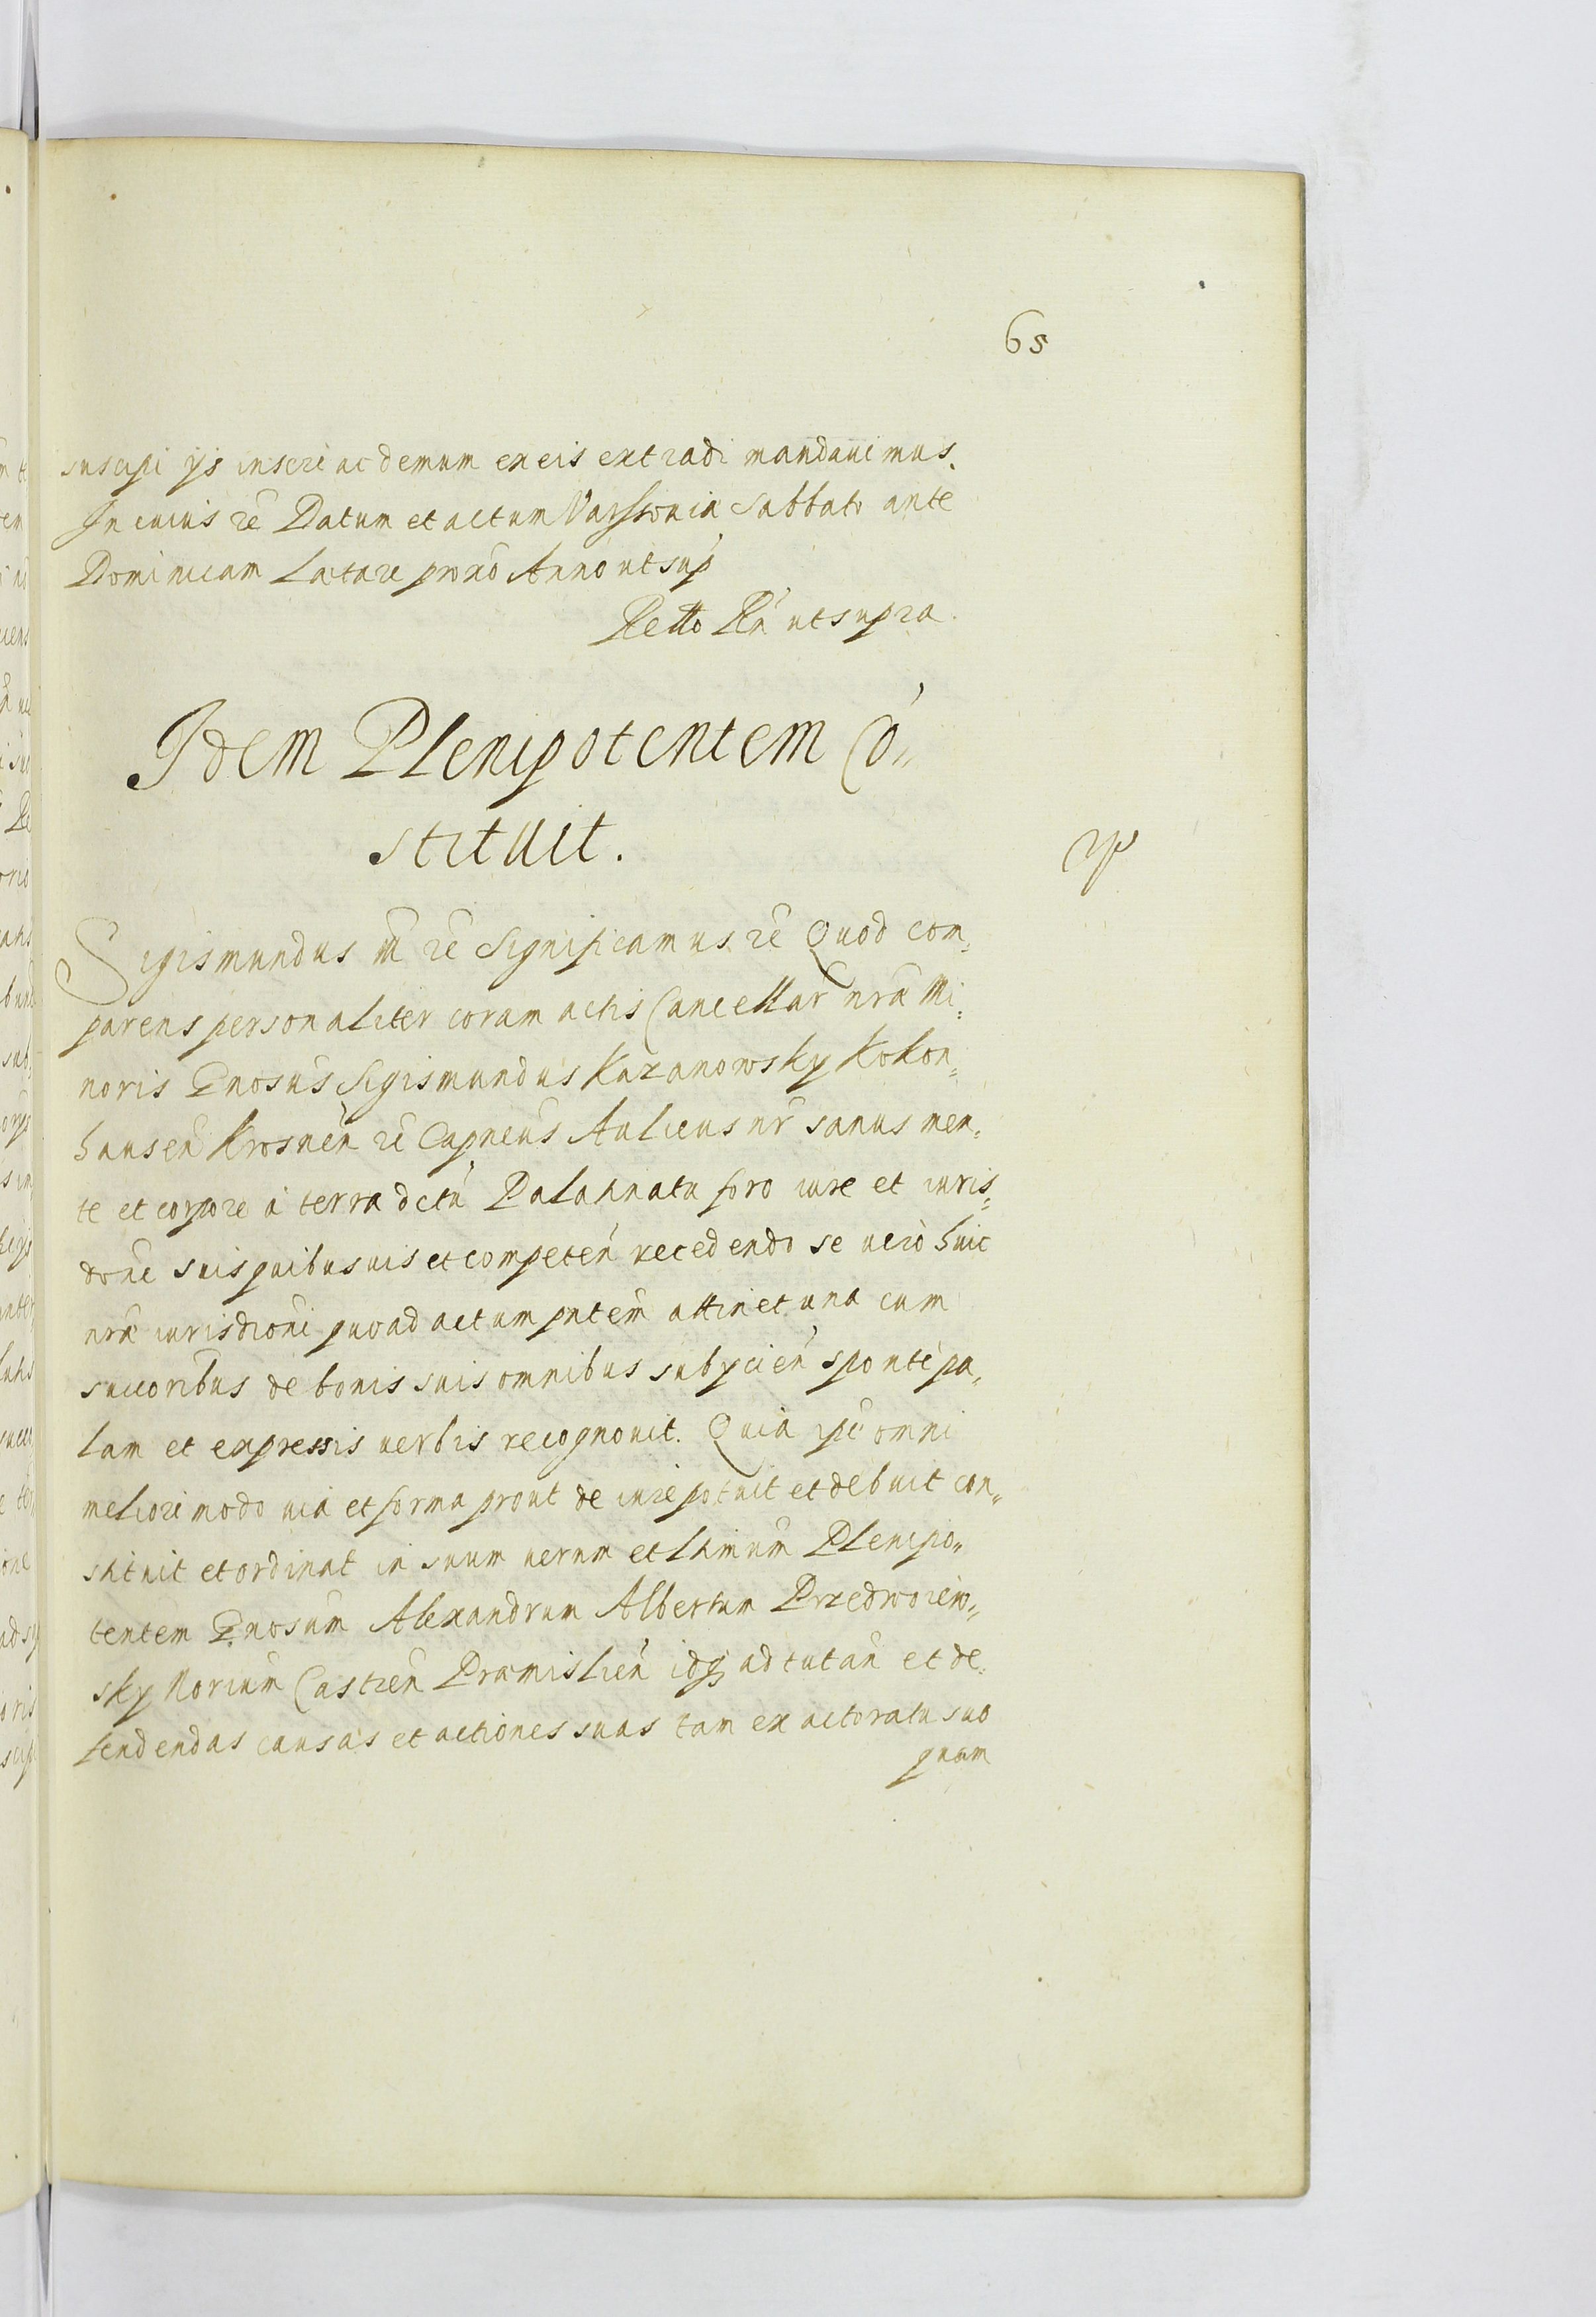 65
suscipi ijs inseri ac demum ex eis extradi mandauimus.
In cuius rē Datum et actum Varssouiæ Sabbato ante
Dominicam Lætare proxō Anno ut sup
Rello Rń ut supra.
Idem Plenipotentem Có„
stituit.
Sigismundus m̄ rē Significamus rē Quod com„
parens personaliter coram actis Cancellar̄ nrǣ Mi„
noris Gnosus Sigismundus Kazanowsky Kokon„
hausen̄ Krosnen̄ rē Capneus Aulicus nr̄ sanus men„
te et corpore à terra dctń Palatinatu foro iure et iuris„
dōne suis quibusuis et competeń recedendo se uerò huic
nrǣ iurisdioni quo ad actum pntem̄ attinet una cum
succoribus de bonis suis omnibus subyciēn spontè pa„
lam et expressis uerbis recognouit. Quia ipē omni
meliori modo uia et forma prout de iure potuit et debuit con„
stituit et ordinat in suum uerum et lt̄imum Plenipo„
tentem Gnosum Alexandrum Albertum Przedwoiew„
sky Norium̄ Castreń Præmislień idq; ad tutan̄ et de„
fendendas causas et actiones suas tam ex actoratu suo
quam